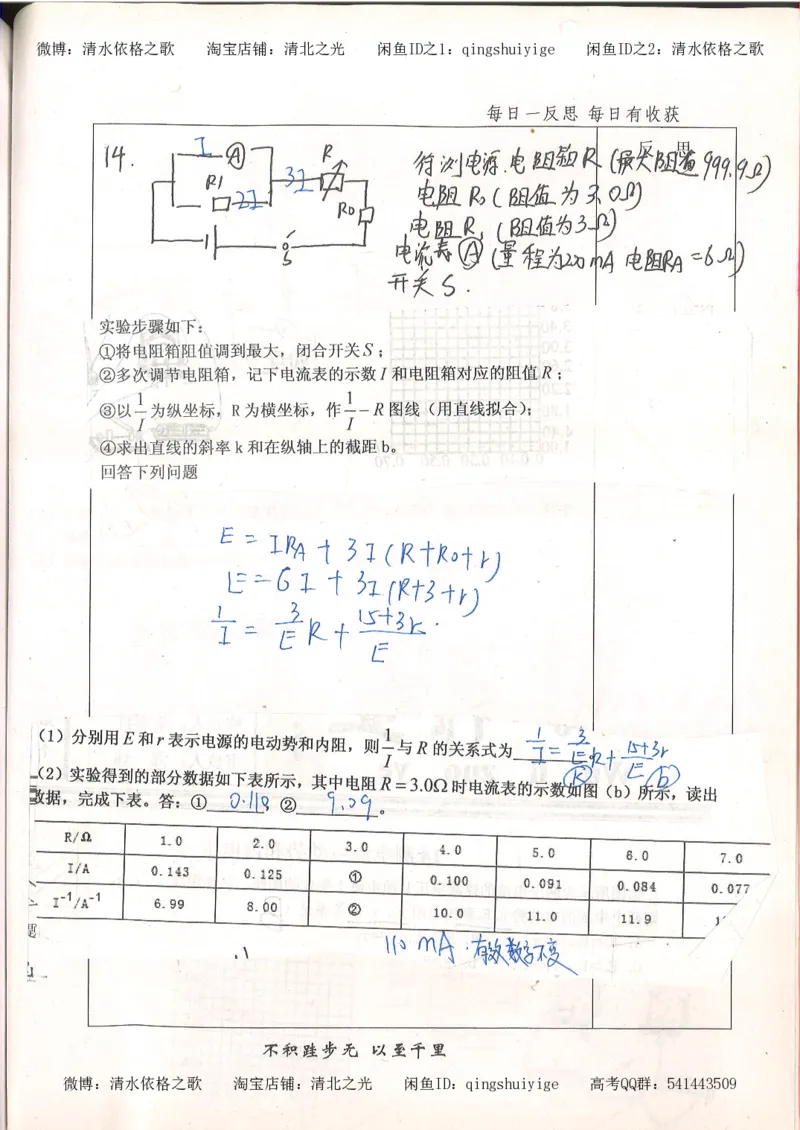 微博：清水依格之歌 淘宝店铺：清北之光 闲鱼ID之1：qingshuiyige 闲鱼ID之2：清水依格之歌
每日一反思 每日有收获
反思
14.
I A
R1 2I 3I R
R0
S
待测电源、电阻箱R（最大阻值999.9Ω）
电阻R0（阻值为3.0Ω）
电阻R1（阻值为3Ω）
电流表Ⓐ（量程为200mA 电阻RA=6Ω）
开关S.
实验步骤如下：
①将电阻箱阻值调到最大，闭合开关S；
②多次调节电阻箱，记下电流表的示数I和电阻箱对应的阻值R；
③以1/I为纵坐标，R为横坐标，作1/I－R图线（用直线拟合）；
④求出直线的斜率k和在纵轴上的截距b。
回答下列问题
E = IRA + 3I(R+R0+r)
E = 6I + 3I(R+3+r)
1/I = 3/E R + 15+3r/E .
（1）分别用E和r表示电源的电动势和内阻，则1/I与R的关系式为 1/I = 3/E R + 15+3r/E
（2）实验得到的部分数据如下表所示，其中电阻R=3.0Ω时电流表的示数如图（b）所示，读出
k b
数据，完成下表。答：① 0.110 ② 9.09 。
R/Ω 1.0 2.0 3.0 4.0 5.0 6.0 7.0
I/A 0.143 0.125 ① 0.100 0.091 0.084 0.077
I⁻¹/A⁻¹ 6.99 8.00 ② 10.0 11.0 11.9
110 mA. 有效数字不变
不积跬步无 以至千里
微博：清水依格之歌 淘宝店铺：清北之光 闲鱼ID：qingshuiyige 高考QQ群：541443509